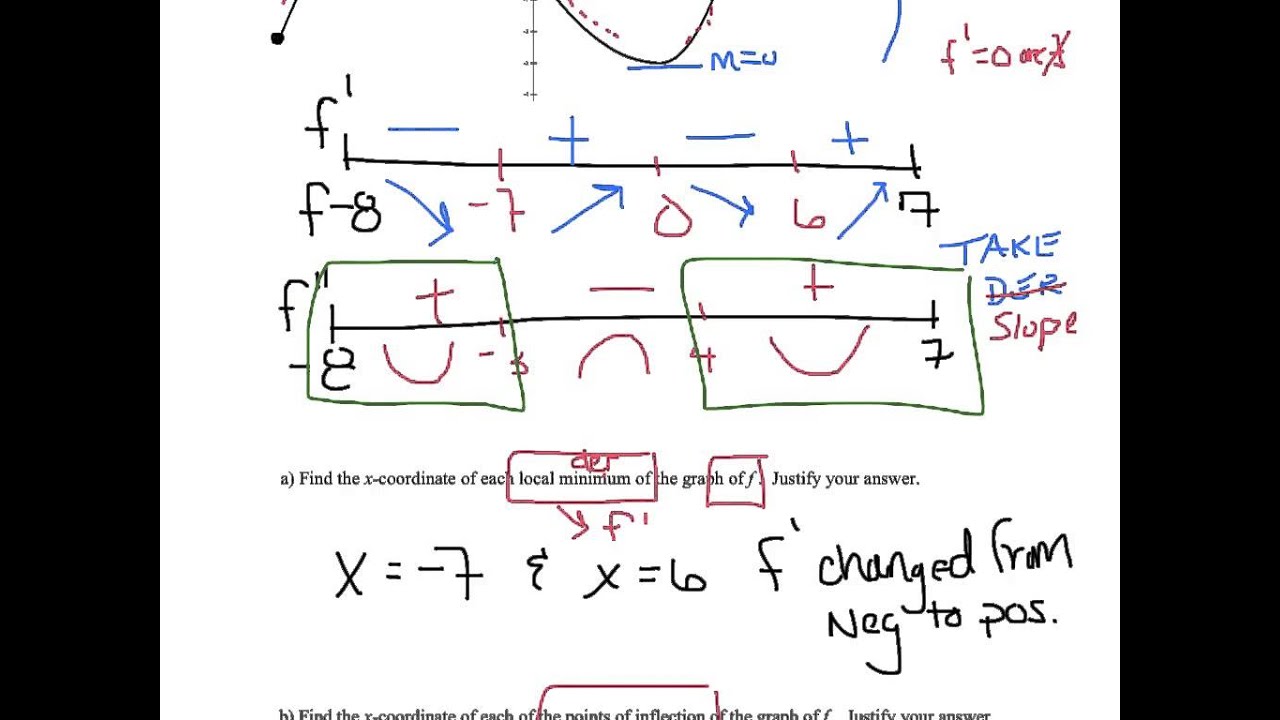 m=0
f'=0 or
f' — + — +
f -8 -7 0 6 7
TAKE
DER
Slope
f" + — +
-8 4 7
der
a) Find the x-coordinate of each local minimum of the graph of f. Justify your answer.
f'
X = -7 & x = 6 f' changed from
Neg to pos.
b) Find the x-coordinate of each of the points of inflection of the graph of f. Justify your answer